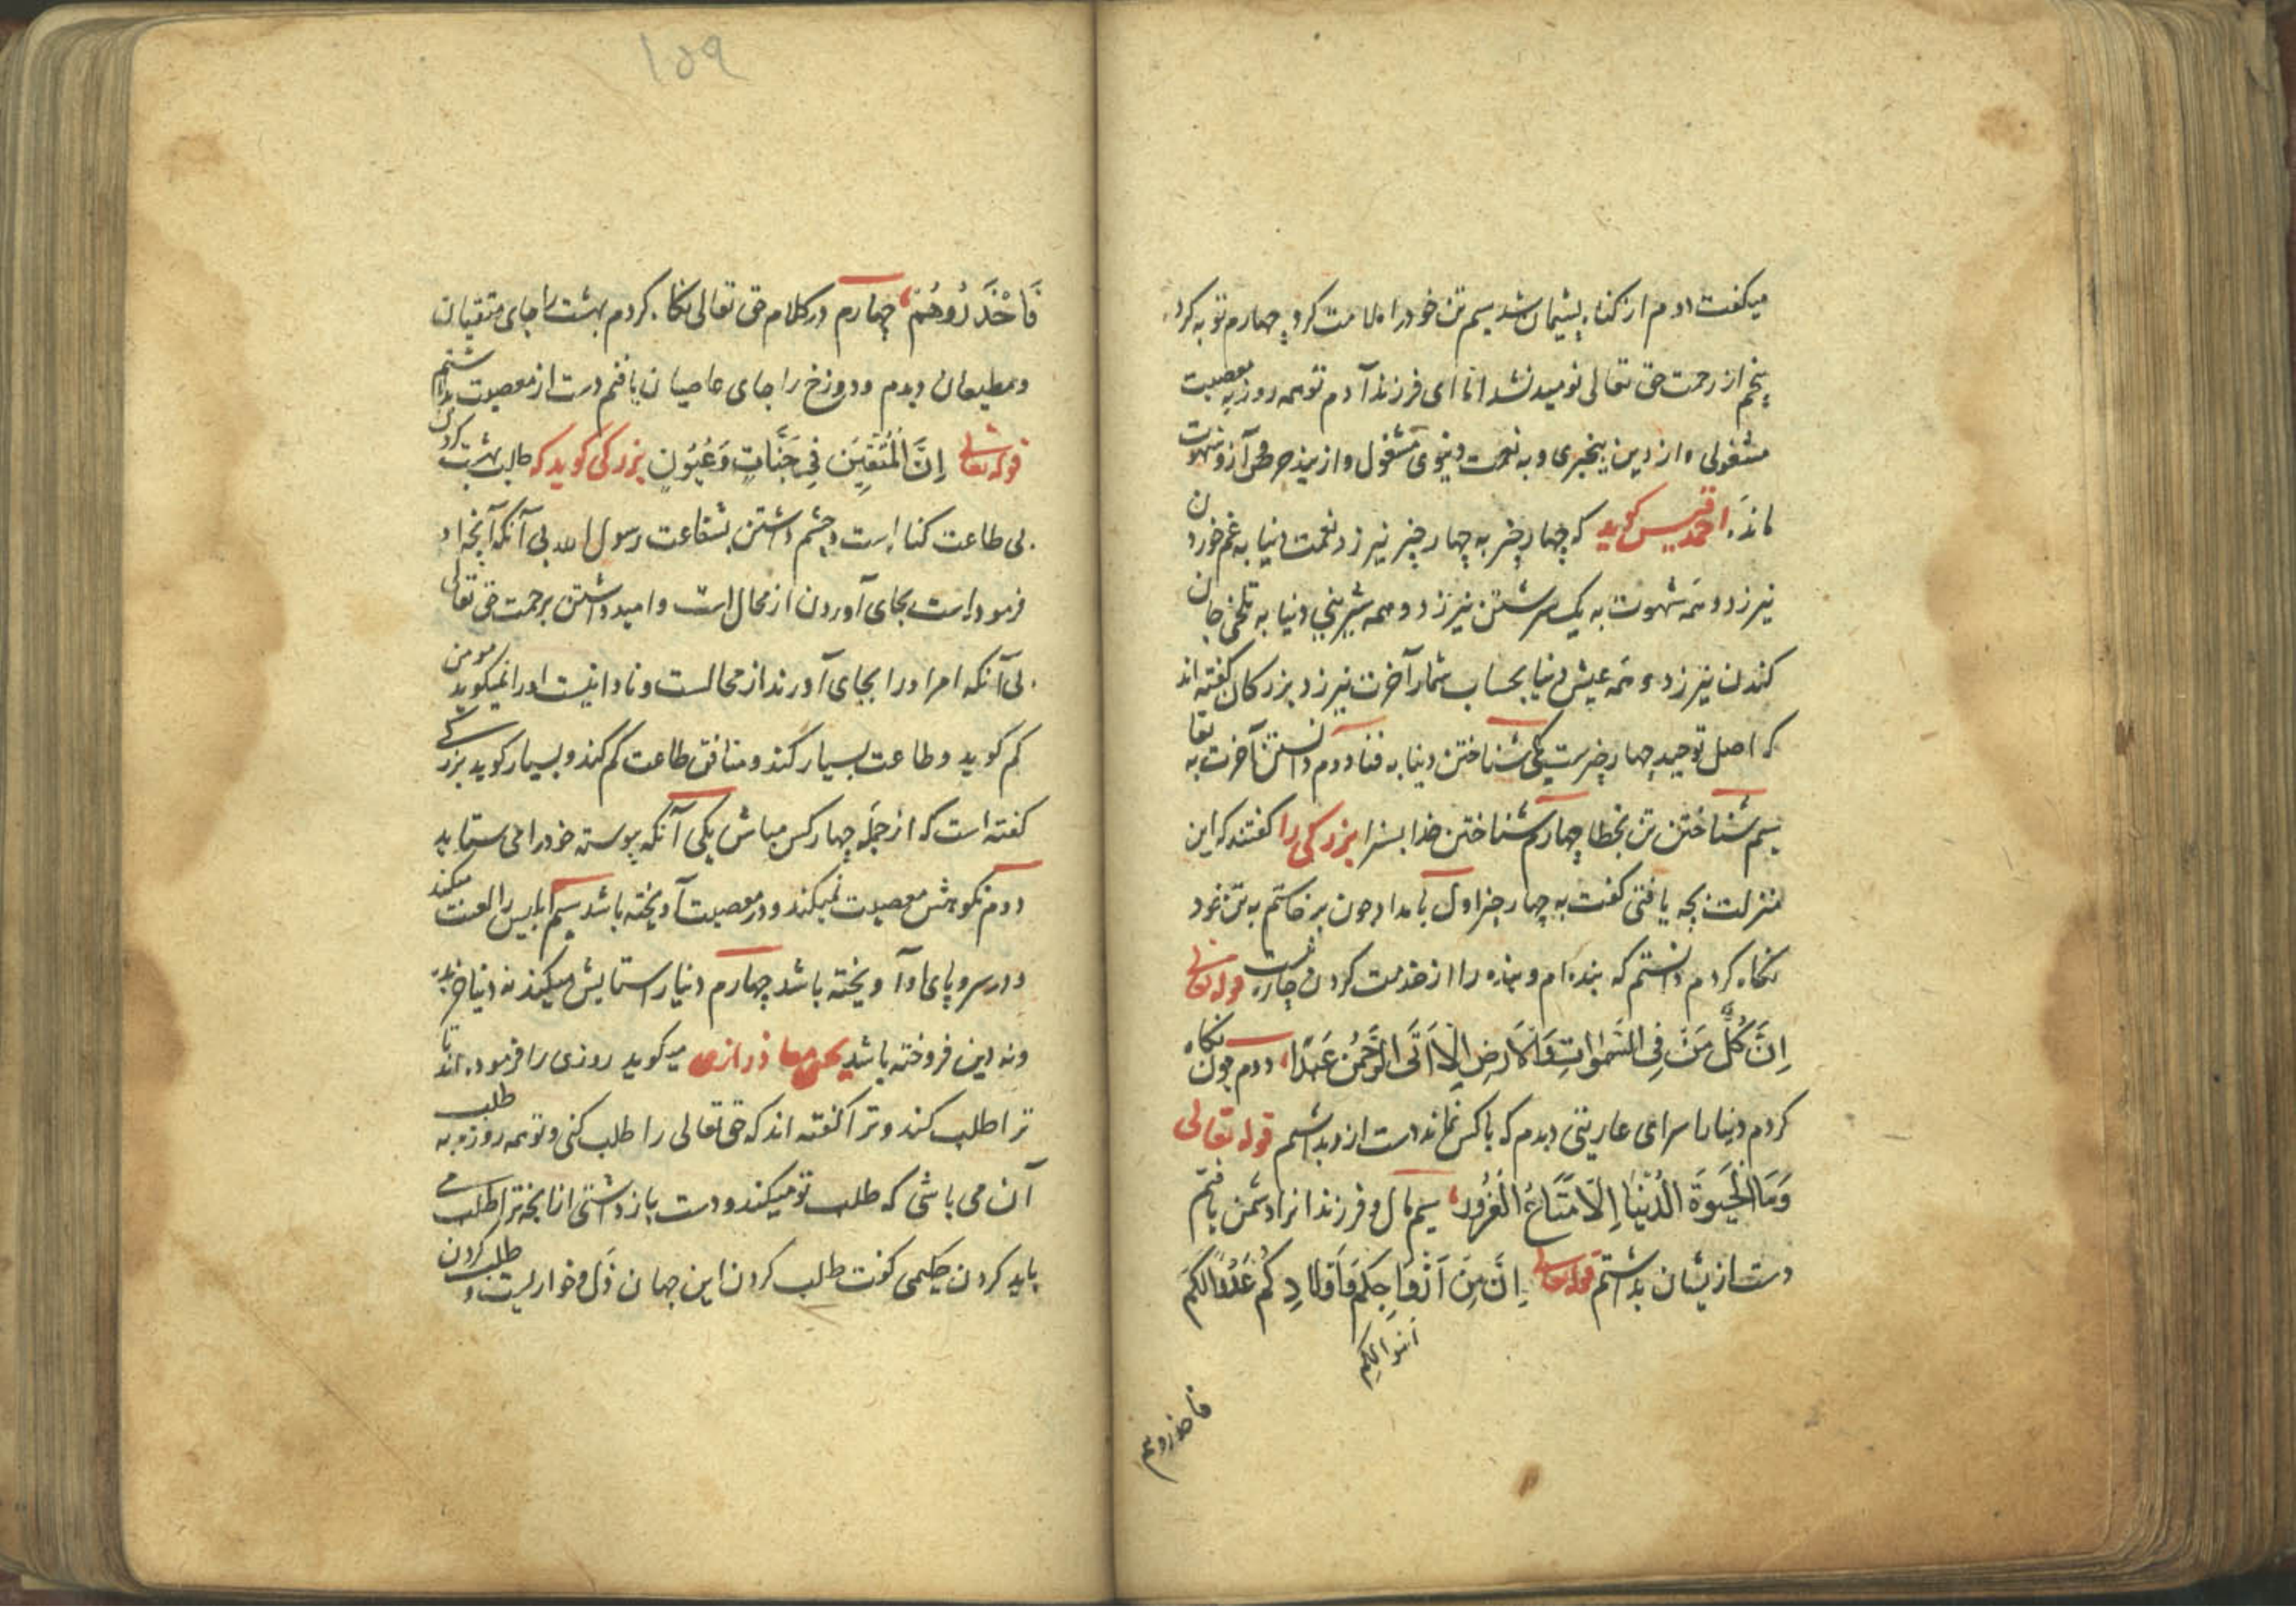 میکفت دوم از کناه پشیمان شد سیم تن خود را ملامت کرد چهارم توبه کرد
پنجم از رحمت حق تعالی نومید نشد اما ای فرزند آدم تو همه روز به معصیت
مشغولی و از دین بیخبری و به نعمت دنیوی مشغول و از پند حرص آز و شهوت
مانده احمد قیس کوید که چهار چیز به چهار چیز نیرزد نعمت دنیا به غم خوردن
نیرزد و همه شهوت به یک سرشستن نیرزد و همه شیرینی دنیا به تلخی جان
کندن نیرزد و همه عیش دنیا بحساب شمار آخرت نیرزد بزرکان کفته اند
که اصل توحید چهار چیزست یکی شناختن دنیا به فنا دوم دانستن آخرت به بقا
سیم شناختن تن بخطا چهارم شناختن خدا بسزا بزرکی را کفتند که این
منزلت بچه یافتی کفت به چهار چیز اول بامداد چون برخاستم به تن خود
نکاه کردم دانستم که بنده ام و بنده را از خدمت کردن چاره نیست قوله تعالی
اِنَّ کُلُّ مَنْ فِی السَّمٰوَاتِ وَالْاَرْضِ اِلَّا اَتَی الرَّحْمٰنِ عَبْدًا دوم چون نکاه
کردم دنیا را سرای عاریتی دیدم که با کس نماند دست از وی بداشتم قوله تعالی
وَمَا الْحَیٰوةَ الدُّنْیَا اِلَّا مَتَاعُ الْغُرُور سیم مال و فرزندانرا دشمن یافتم
دست ازیشان بداشتم قوله تعالی اِنَّ مِنْ اَزْوَاجِکُمْ وَاَوْلَادِکُمْ عَدُوًّا لَکُمْ
اموالکم
فاحذروهم
١٥٩
فَاحْذَرُوهُمْ چهارم در کلام حق تعالی نکاه کردم بهشت را جای متقیان
و مطیعان دیدم و دوزخ را جای عاصیان یافتم دست از معصیت بداشتم
قوله تعالی اِنَّ الْمُتَّقِینَ فِی جَنَّاتٍ وَعُیُونٍ بزرکی کوید که طلب بهشت کردن
بی طاعت کناه است و چشم داشتن بشفاعت رسول الله بی آنکه آنچه او
فرموده است بجای آوردن از محال است و امید داشتن برحمت حق تعالی
بی آنکه امر او را بجای آورند از محالست و نادانیست او را نمیکوید مومن
کم کوید و طاعت بسیار کند و منافق طاعت کم کند و بسیار کوید بزرکی
کفته است که از جمله چهار کس مباش یکی آنکه پیوسته خود را می ستاید
دوم نکوهش معصیت نمیکند و در معصیت آویخته باشد سیم ابلیس را لعنت میکند
و در سر و پای او آویخته باشد چهارم دنیا را ستایش میکند نه دنیا خرد
و نه دین فروخته باشد یحیی معاذ رازی میکوید روزی را فرموده اند تا
ترا طلب کند و ترا کفته اند که حق تعالی را طلب کنی و تو همه روزه به طلب
آن می باشی که طلب تو میکند و دست باز داشتی از آنچه ترا طلب می
باید کردن حکیمی کوفت طلب کردن این جهان ذل و خواریست و طلب کردن